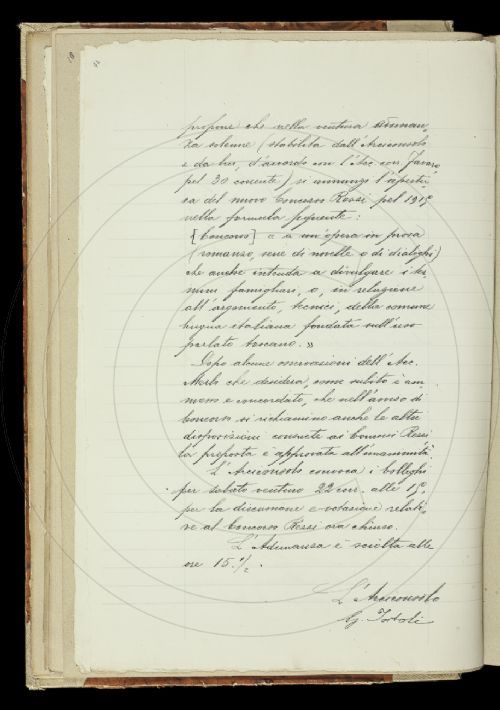 propone che nella ventura adunan-
za solenne (stabilita dall'Arciconsolo
e da lui, d'accordo con l'Acc.
pel 30 corrente) si annunzi l'apertu-
ra del nuovo Concorso Rossi pel 191
nella formula seguente:
[Concorso] a un'opera in prosa
(romanzo, serie di novelle o di dialoghi)
che anche intenda a divulgare i ter-
mini famigliari, o, in relazione
all'argomento, tecnici, della comune
lingua italiana fondata sull'uso
parlato toscano.»
Dopo alcune osservazioni dell'Acc.
che desidera, come subito è am-
messo e concordato, che nell'avviso di
concorso si richiamino anche le altre
disposizioni consuete ai Concorsi Rossi,
la proposta è approvata all'unanimità.
L'Arciconsolo convoca i Colleghi
per sabato venturo 22 corr. alle 15,
per la discussione e votazione relati-
ve al Concorso Rossi ora chiuso.
L'Adunanza è sciolta alle
ore 15 1/2.
L'Arciconsolo
G. Tortoli